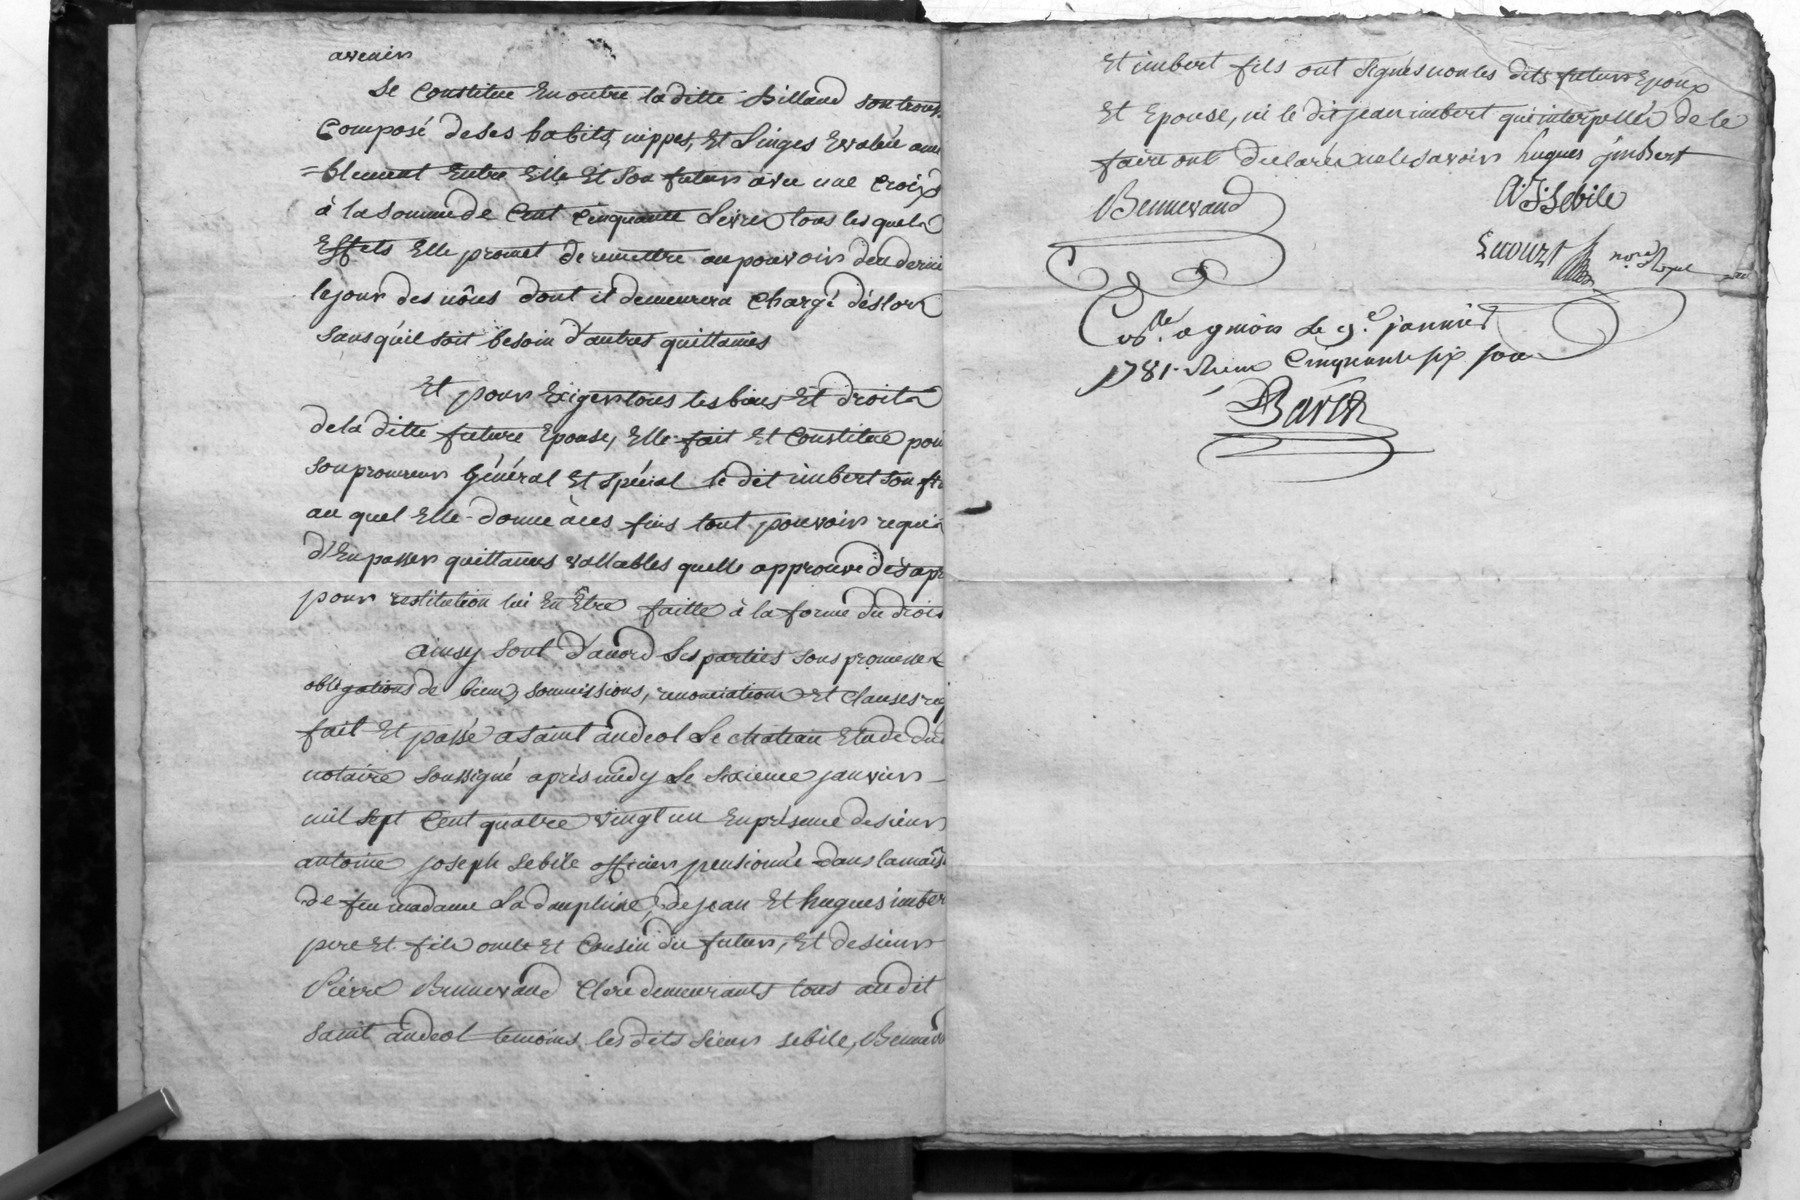 avenir
Se Constitue En outre laditte Billand son trous.
Composé de ses habits, nippes, Et Linges Evalué ami
=blement Entre Elle Et Son futur avec une Croix
à la somme de Cent Cinquante Livres tous lesquels
Effets Elle promet de remettre au pouvoir deu dernie
lejour des nôces dont il demeurera Chargé déslors
sans qu'il soit besoin d'autres quittances
Et pour Exiger tous les biens Et droits
dela ditte future Epouse, Elle fait Et Constitue pour
son procureur général Et spécial le dit imbert son fu
au quel Elle donne à ces fins tout pouvoir requis
d'En passer quittances vallables quelle approuve dès apr
pour restitution lui En Être faitte à la forme du droit
Ainsy sont d'acord Les parties sous promesses
obligations de biens, soumissions, renonciations et Clauses req
fait Et passé a saint andeol Le chateau Etude du
notaire soussigné après midy Le sixieme janvier
mil sept Cent quatre vingt un En présence de sieur
antoine joseph sebile officier pensionné dans la mais
de feu madame La dauphine, de jean Et hugues imber
pere Et fils oncle Et Cousin du futur, Et de sieur
Pierre Bennevand Clerc demeurants tous audit
saint andeol temoins, les dits sieurs sebile, Bennev
Et imbert fils ont signés non les dits futurs Epoux
Et Epouse, ni le dit jean imbert qui interpellés de le
faire ont declarés ne le savoir hugues jmbert
Bennevand
A. J. Sebile
not.re Royal
Con.lle a gniors Le 9.e janvier
1781. Reçu Cinquante six sous